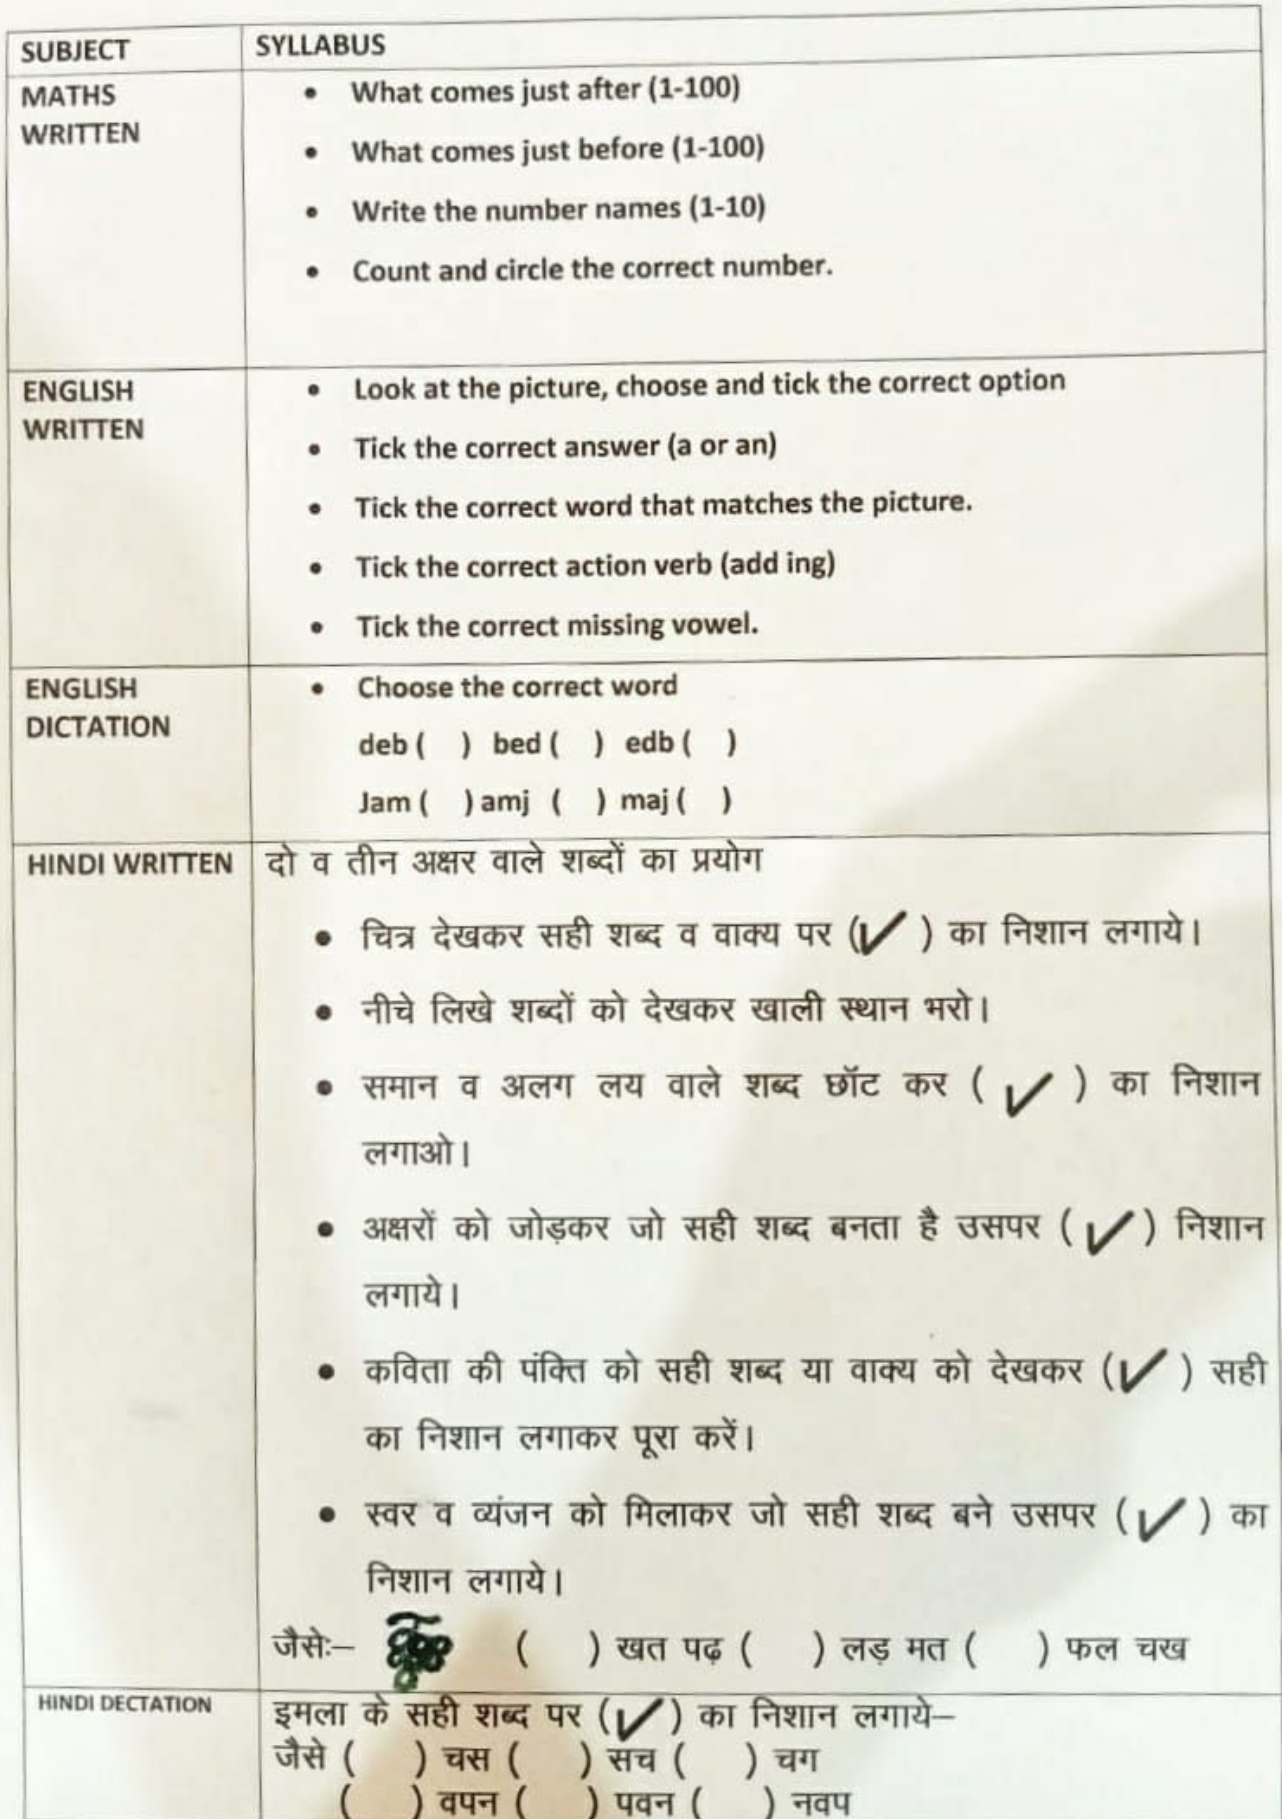 SUBJECT SYLLABUS
MATHS WRITTEN
• What comes just after (1-100)
• What comes just before (1-100)
• Write the number names (1-10)
• Count and circle the correct number.
ENGLISH WRITTEN
• Look at the picture, choose and tick the correct option
• Tick the correct answer (a or an)
• Tick the correct word that matches the picture.
• Tick the correct action verb (add ing)
• Tick the correct missing vowel.
ENGLISH DICTATION
• Choose the correct word
deb ( ) bed ( ) edb ( )
Jam ( ) amj ( ) maj ( )
HINDI WRITTEN
दो व तीन अक्षर वाले शब्दों का प्रयोग
• चित्र देखकर सही शब्द व वाक्य पर (✓) का निशान लगाये।
• नीचे लिखे शब्दों को देखकर खाली स्थान भरो।
• समान व अलग लय वाले शब्द छॉट कर ( ✓ ) का निशान
लगाओ।
• अक्षरों को जोड़कर जो सही शब्द बनता है उसपर ( ✓ ) निशान
लगाये।
• कविता की पंक्ति को सही शब्द या वाक्य को देखकर (✓ ) सही
का निशान लगाकर पूरा करें।
• स्वर व व्यंजन को मिलाकर जो सही शब्द बने उसपर ( ✓ ) का
निशान लगाये।
जैसेः– ( ) खत पढ़ ( ) लड़ मत ( ) फल चख
HINDI DECTATION
इमला के सही शब्द पर (✓) का निशान लगाये–
जैसे ( ) चस ( ) सच ( ) चग
( ) वपन ( ) पवन ( ) नवप